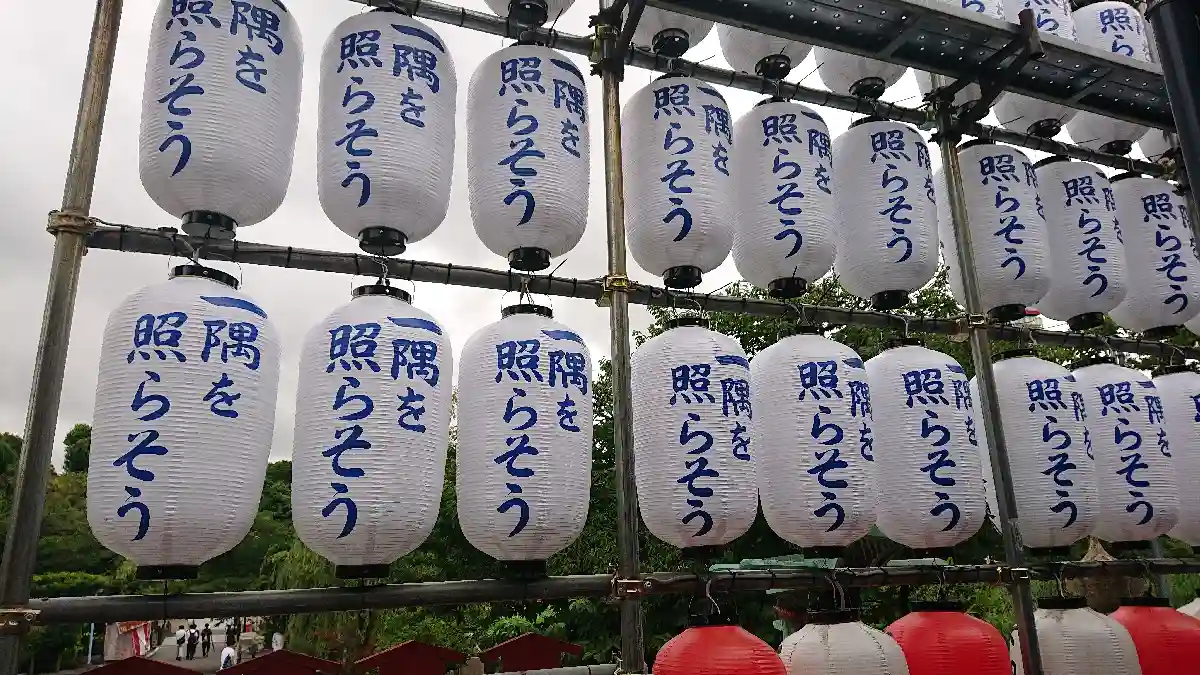 隅を
照らそう
一隅を
照らそう
一隅を
照らそう
一隅を
照らそう
一隅を
照らそう
隅を
照らそう
隅を
照らそう
隅を
照らそう
照らそう
一隅を
照らそう
一隅を
照らそう
一隅を
照らそう
一隅を
照らそう
一隅を
照らそう
一隅を
照らそう
隅を
照らそう
隅を
照らそう